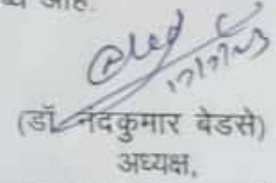 आहे.
(डॉ. नंदकुमार बेडसे)
अध्यक्ष,